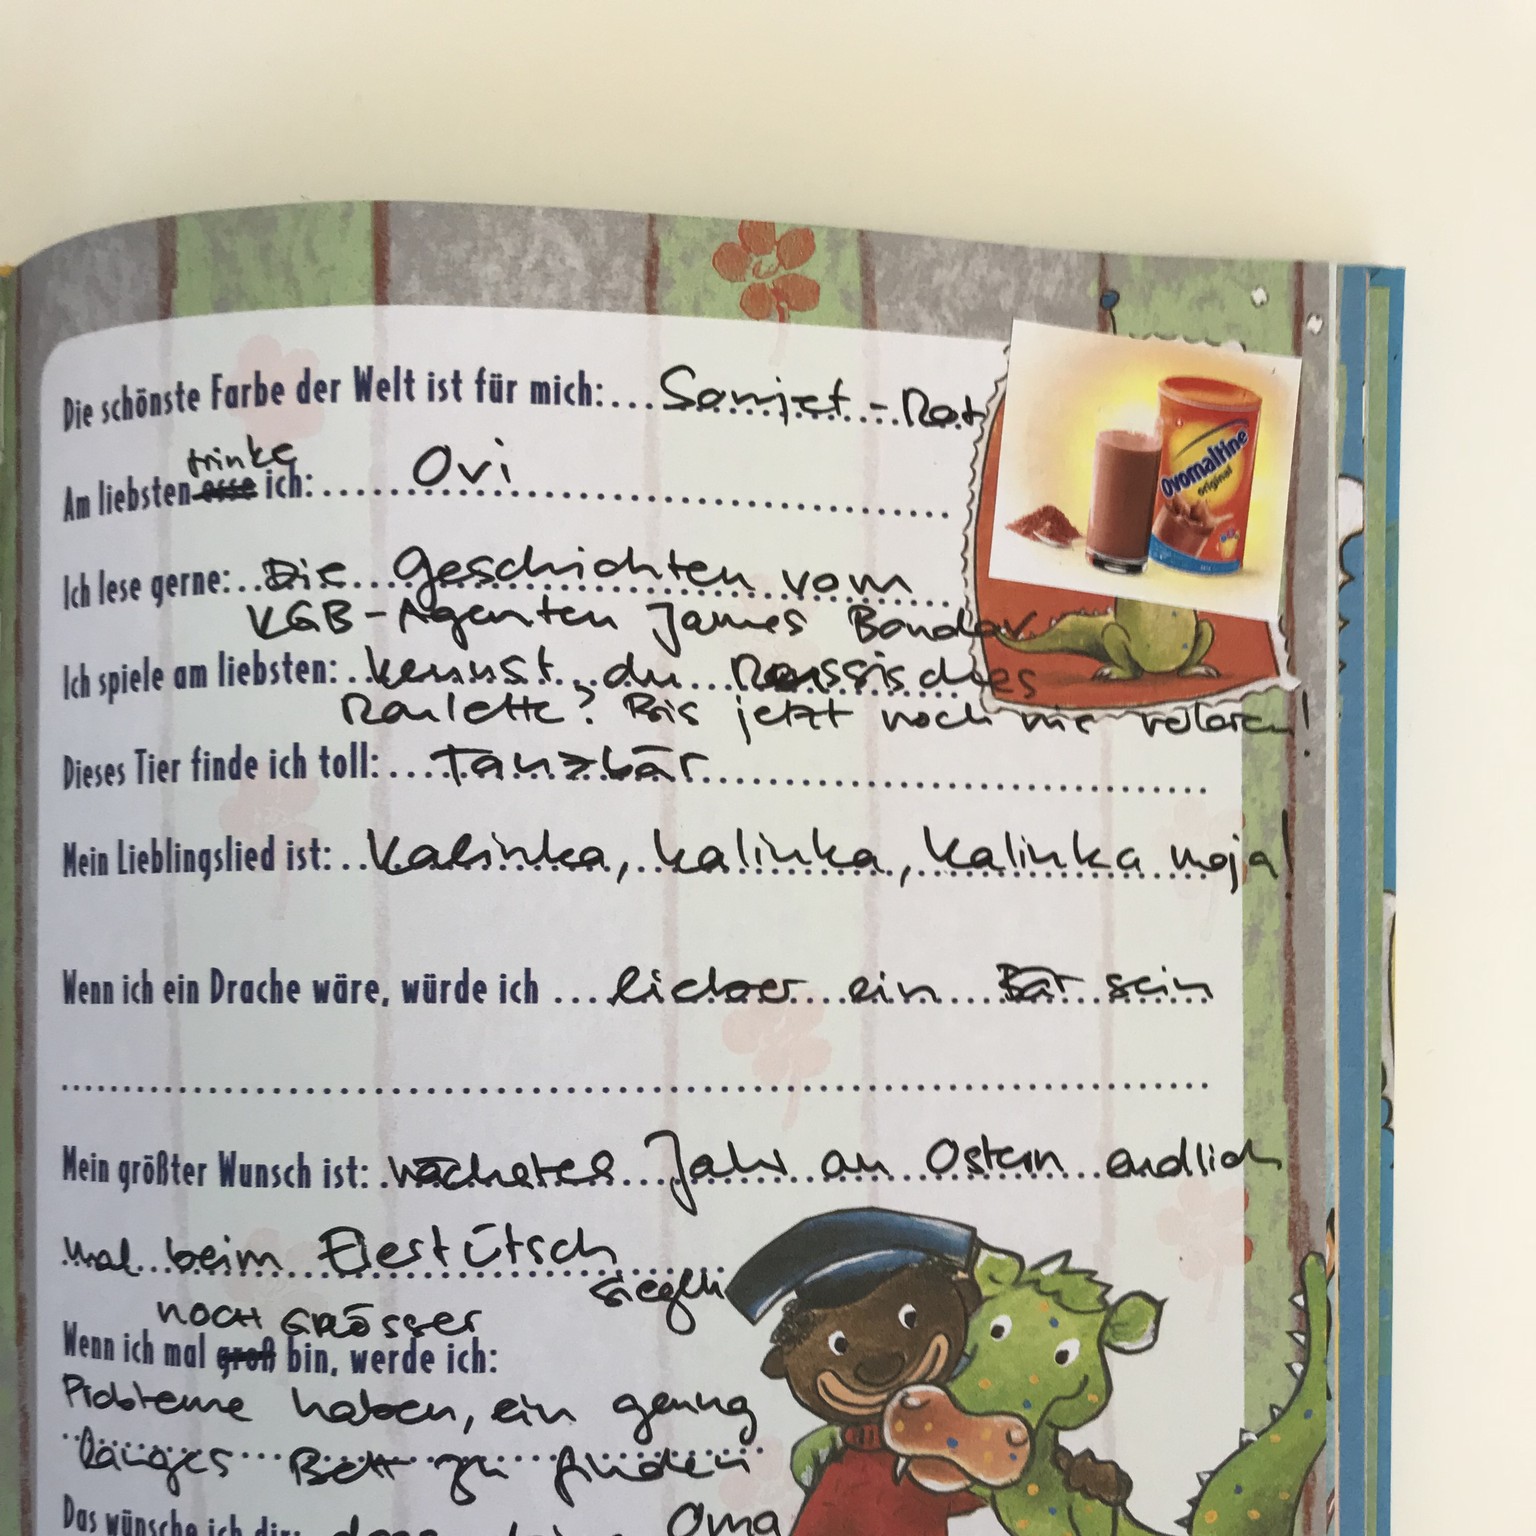 Die schönste Farbe der Welt ist für mich: Sowjet-Rot
trinke
Am liebsten esse ich: Ovi
Ovomaltine
original
Ich lese gerne: Die Geschichten vom
KGB-Agenten James Bondov
Ich spiele am liebsten: kennst du Russisches
Roulette? Bis jetzt noch nie verloren!
Dieses Tier finde ich toll: Tanzbär
Mein Lieblingslied ist: Kalinka, kalinka, kalinka moja!
Wenn ich ein Drache wäre, würde ich ... lieber ein Bär sein
Mein größter Wunsch ist: nächstes Jahr an Ostern endlich
mal beim Eiertütsch
siegen
noch GRÖSSER
Wenn ich mal groß bin, werde ich:
Probleme haben, ein genug
langes Bett zu finden
Das wünsche ich dir: dass Oma